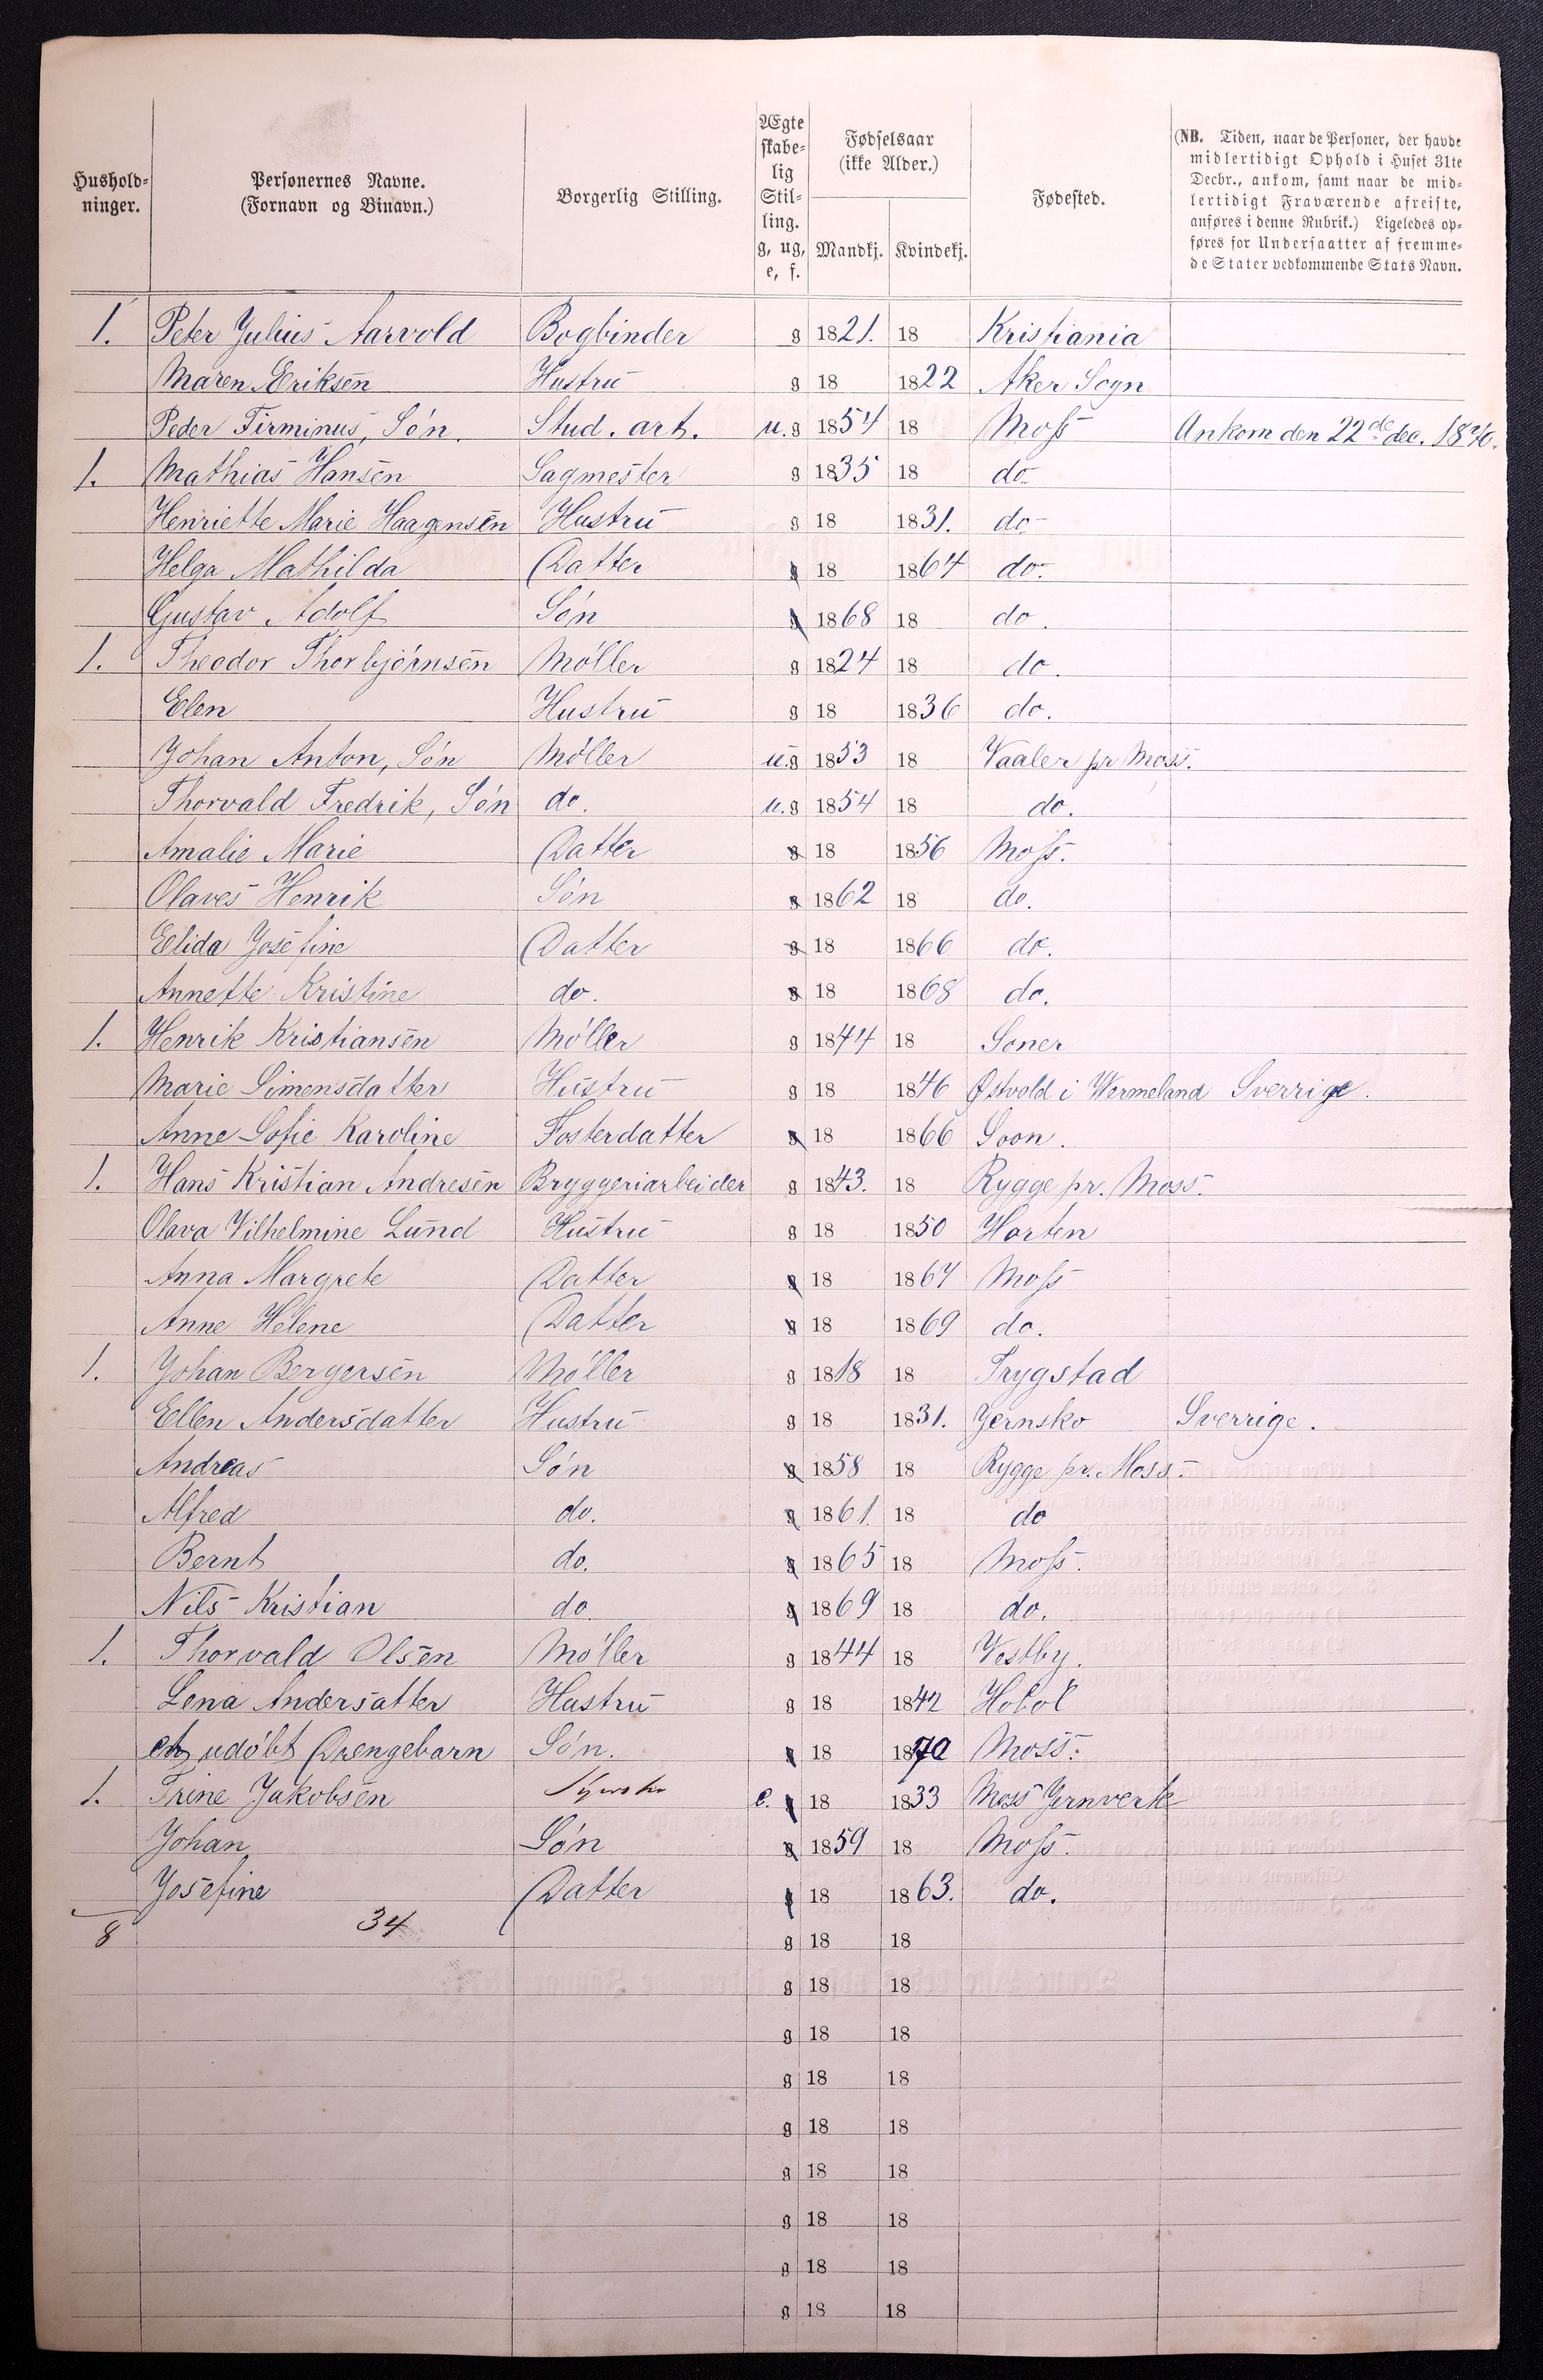 Hushold-
ninger.
Personernes Navne.
(Fornavn og Binavn.)
Borgerlig Stilling.
Ægte
skabe-
lig
Stil-
ling.
g, ug,
e, f.
Fødselsaar
(ikke Alder.)
Mandkj. Kvindekj.
Fødested.
(NB. Tiden, naar de Personer, der havde
midlertidigt Ophold i Huset 31te
Decbr., ankom, samt naar de mid-
lertidigt Fraværende afreiste,
anføres i denne Rubrik.) Ligeledes op-
føres for Undersaatter af fremme-
de Stater vedkommende Stats Navn.
1. Peter Julius Aarvold Bogbinder g 1821. 18 Kristiania
Maren Eriksen Hustru g 18 1822 Aker Sogn
Peder Firminus, Søn. Stud. art. u.g 1854 18 Moss Ankom den 22de dec. 1870.
1. Mathias Hansen Sagmester g 1835 18 do
Henriette Marie Haagensen Hustru g 18 1831. do
Helga Mathilda Datter g 18 1864 do.
Gustav Adolf Søn g 1868 18 do.
1. Theodor Thorbjørnsen Møller g 1824 18 do.
Elen Hustru g 18 1836 do.
Johan Anton, Søn Møller u.g 1853 18 Vaaler pr Moss.
Thorvald Fredrik, Søn do. u.g 1854 18 do.
Amalie Marie Datter g 18 1856 Moss.
Olaves Henrik Søn g 1862 18 do.
Elida Josefine Datter g 18 1866 do.
Annette Kristine do. g 18 1868 do.
1. Henrik Kristiansen Møller g 1844 18 Soner
Marie Simensdatter Hustru g 18 1846 Østvold i Wermeland Sverrige.
Anne Sofie Karoline Fosterdatter g 18 1866 Soon.
1. Hans Kristian Andresen Bryggeriarbeider g 1843. 18 Rygge pr. Moss.
Olava Vilhelmine Lund Hustru g 18 1850 Horten
Anna Margrete Datter g 18 1867 Moss
Anne Helene Datter g 18 1869 do.
1. Johan Bergersen Møller g 1818 18 Trygstad
Ellen Andersdatter Hustru g 18 1831. Jernsko Sverrige.
Andreas Søn g 1858 18 Rygge pr. Moss.
Alfred do. g 1861. 18 do
Bernt do. g 1865 18 Moss.
Nils Kristian do. g 1869 18 do.
1. Thorvald Olsen Møller g 1844 18 Vestby.
Lena Andersatter Hustru g 18 1842 Hobol
et udøbt Drengebarn Søn. g 18 1870 Moss.
1. Trine Jakobsen e. g 18 1833 Moss Jernverk
Johan Søn g 1859 18 Moss.
Josefine Datter g 18 1863. do.
8 34 g 18 18
g 18 18
g 18 18
g 18 18
g 18 18
g 18 18
g 18 18
g 18 18
g 18 18